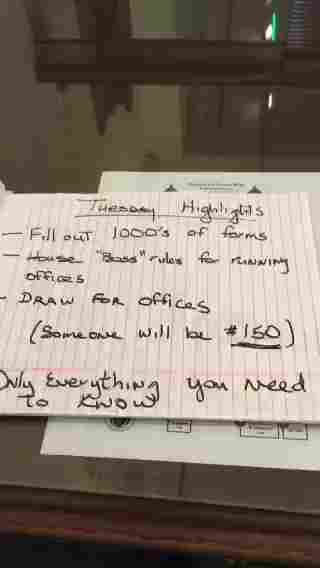 Tuesday Highlights
— Fill out 1000's of forms
— House "Boss" rules for running
offices
- Draw for offices
(Someone will be #150)
Only Everything you need
to know